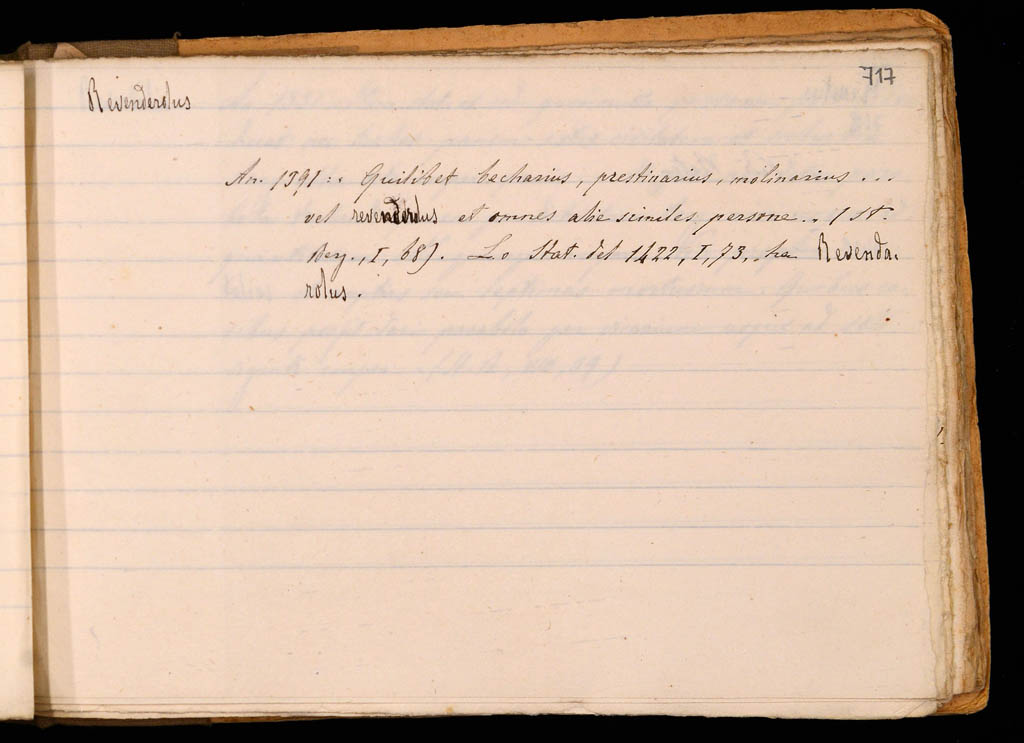 717
Revenderolus
An. 1391: Quilibet becharius, prestinarius, molinarius...
vel revenderolus et omnes alie similes persone.. (St.
Berg., I, 68). Lo Stat. del 1422, I, 73, ha Revenda-
rolus.